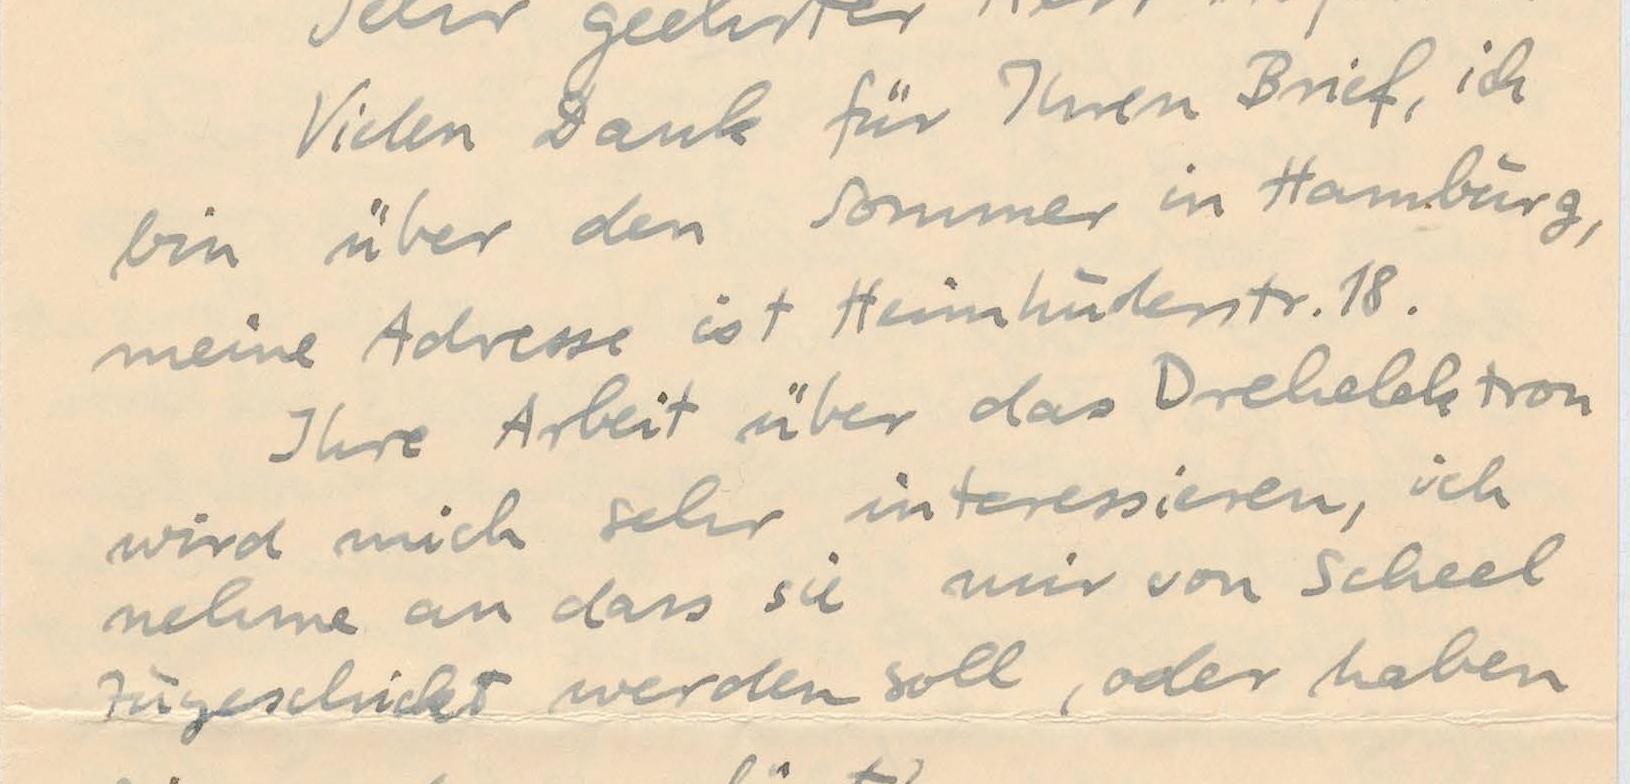 Sehr geehrter Herr
Vielen Dank für Ihren Brief, ich
bin über den Sommer in Hamburg,
meine Adresse ist Heimhuderstr. 18.
Ihre Arbeit über das Drehelektron
wird mich sehr interessieren, ich
nehme an dass sie mir von Scheel
zugeschickt werden soll, oder haben